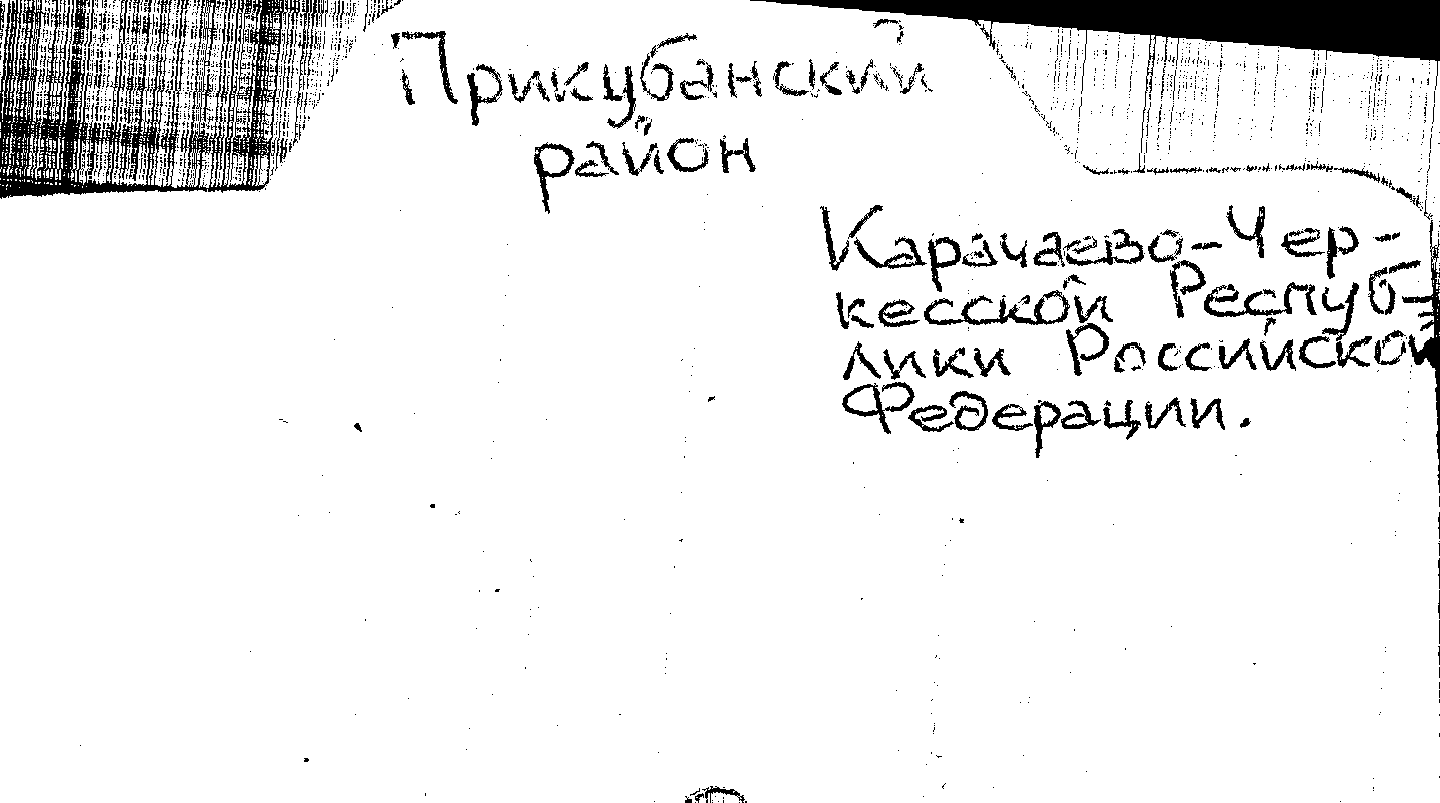 Прикубанский
район
Карачаево-Чер-
кесской Респуб-
лики Российской
Федерации.